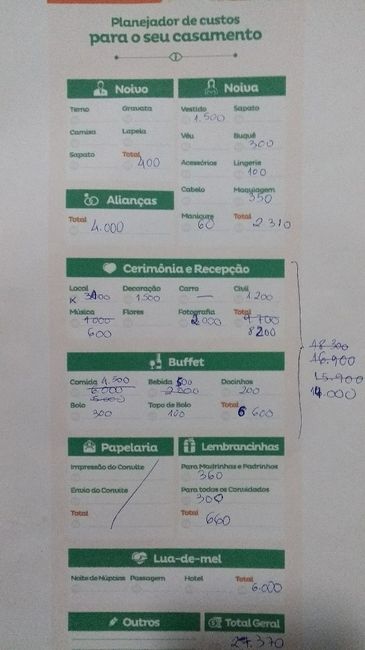 Planejador de custos
para o seu casamento
Noivo
Terno Gravata
Camisa Lapela
Sapato Total
400
Alianças
Total
4.000
Noiva
Vestido Sapato
1.500
Véu Buquê
300
Acessórios Lingerie
100
Cabelo Maquiagem
350
Manicure Total
60 2 310
Cerimônia e Recepção
Local Decoração Carro Civil
1.500 — 1.200
Música Flores Fotografia Total
1.000 2.000 9 700
600 8200
Buffet
Comida Bebida Docinhos
4.500 500
6.000 2.000 200
5.000
Bolo Topo de Bolo Total
300 100 6 600
18 300
16.900
15.900
14.000
Papelaria
Impressão do Convite
Envio do Convite
Total
Lembrancinhas
Para Madrinhas e Padrinhos
360
Para todos os Convidados
300
Total
660
Lua-de-mel
Noite de Núpcias Passagem Hotel Total
6.000
Outros
Total Geral
27.370